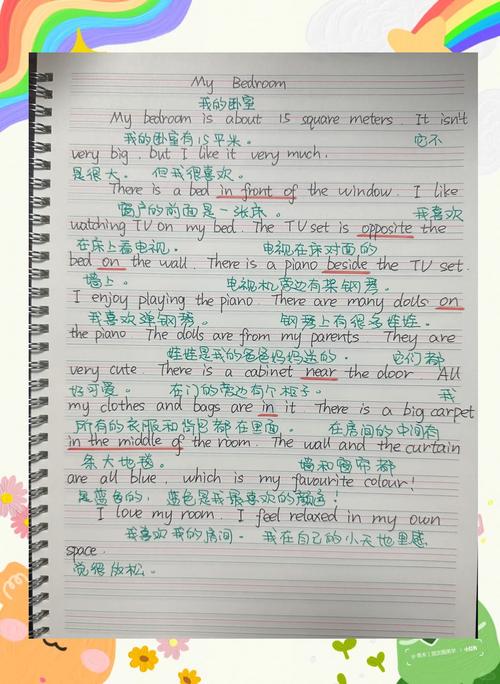 My Bedroom
我的卧室
My bedroom is about 15 square meters. It isn't
我的卧室有15平米。 它不
very big, but I like it very much.
是很大。但我很喜欢。
There is a bed in front of the window. I like
窗户的前面是一张床。 我喜欢
watching TV on my bed. The TV set is opposite the
在床上看电视。 电视在床对面的
bed on the wall. There is a piano beside the TV set.
墙上。 电视机旁边有架钢琴。
I enjoy playing the piano. There are many dolls on
我喜欢弹钢琴。 钢琴上有很多娃娃。
the piano. The dolls are from my parents. They are
娃娃是我的爸爸妈妈送的。 它们都
very cute. There is a cabinet near the door. All
好可爱。 在门的旁边有个柜子。 我
my clothes and bags are in it. There is a big carpet
所有的衣服和背包都在里面。 在房间的中间有
in the middle of the room. The wall and the curtain
条大地毯。 墙和窗帘都
are all blue, which is my favourite colour!
是蓝色的，蓝色是我最喜欢的颜色！
I love my room. I feel relaxed in my own
我喜欢我的房间。我在自己的小天地里感
space.
觉很放松。